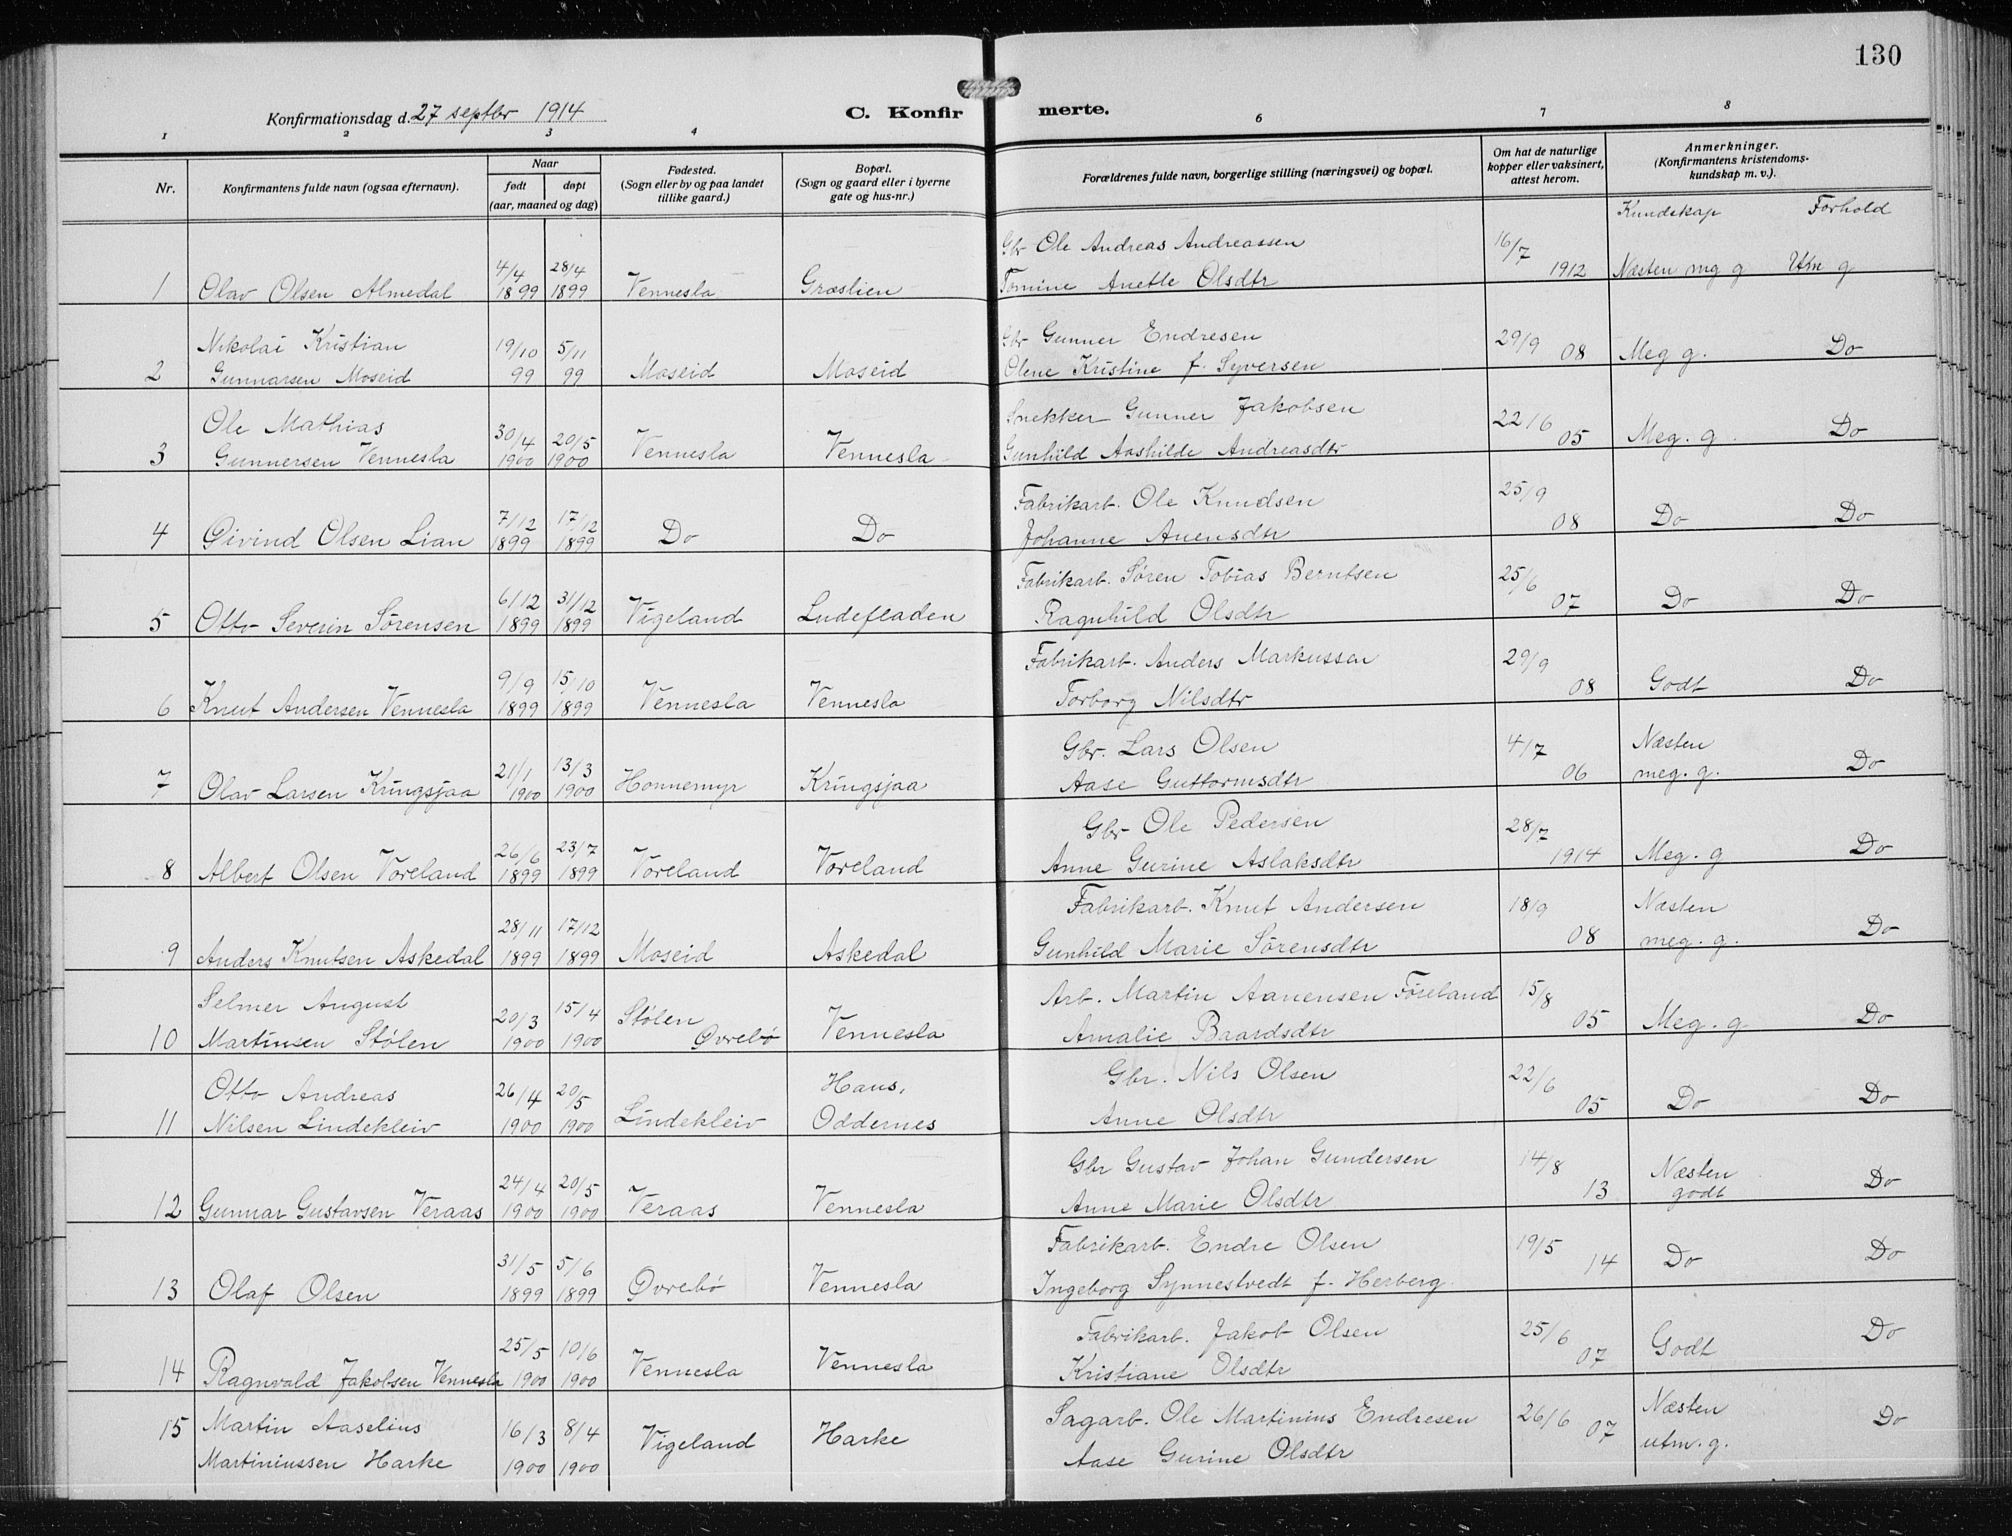 130
Konfirmationsdag d. 27 septbr 1914
C. Konfirmerte.
1 2 3 4 5 6 7 8
Nr. Konfirmantens fulde navn (ogsaa efternavn). Naar født døpt (aar, maaned og dag) Fødested. (Sogn eller by og paa landet tillike gaard.) Bopæl. (Sogn og gaard eller i byerne gate og hus-nr.) Forældrenes fulde navn, borgerlige stilling (næringsvei) og bopæl. Om hat de naturlige kopper eller vaksinert, attest herom. Anmerkninger. (Konfirmantens kristendoms-kundskap m. v.).
Kundskap Forhold
1 Olav Olsen Almedal 4/4 1899 28/4 1899 Vennesla Græslien Gbr Ole Andreas Andreassen
Tomine Anette Olsdtr 16/7 1912 Næsten mg g Utm g
2 Nikolai Kristian
Gunnarsen Moseid 19/10 99 5/11 99 Moseid Moseid Gbr Gunner Endresen
Olene Kristine f. Syversen 29/9 08 Meg g. Do
3 Ole Mathias
Gunnersen Vennesla 30/4 1900 20/5 1900 Vennesla Vennesla Snekker Gunner Jakobsen
Gunhild Aashilde Andreasdtr 22/6 05 Meg. g. Do
4 Øivind Olsen Lian 7/12 1899 17/12 1899 Do Do Fabrikarb. Ole Knudsen
Johanne Anensdtr 25/9 08 Do Do
5 Otto Severin Sørensen 6/12 1899 31/12 1899 Vigeland Ludefladen Fabrikarb. Søren Tobias Berntsen
Ragnhild Olsdtr 25/6 07 Do Do
6 Knut Andersen Vennesla 9/9 1899 15/10 1899 Vennesla Vennesla Fabrikarb. Anders Markussen
Torborg Nilsdtr 29/9 08 Godt Do
7 Olav Larsen Kringsjaa 21/1 1900 13/3 1900 Honnemyr Kringsjaa Gbr. Lars Olsen
Aase Guttormsdtr 4/7 06 Næsten
meg. g. Do
8 Albert Olsen Voreland 26/6 1899 23/7 1899 Voreland Voreland Gbr Ole Pedersen
Anne Gurine Aslaksdtr 28/7 1914 Meg. g Do
9 Anders Knutsen Askedal 28/11 1899 17/12 1899 Moseid Askedal Fabrikarb. Knut Andersen
Gunhild Marie Sørensdtr 18/9 08 Næsten
meg. g. Do
10 Selmer August
Martinsen Stølen 20/3 1900 15/4 1900 Stølen
Øvrebø Vennesla Arb. Martin Aanensen Føreland
Amalie Baardsdtr 15/8 05 Meg. g Do
11 Otto Andreas
Nilsen Lindekleiv 26/4 1900 20/5 1900 Lindekleiv Haus,
Oddernes Gbr. Nils Olsen
Anne Olsdtr 22/6 05 Do Do
12 Gunnar Gustavsen Veraas 24/4 1900 20/5 1900 Veraas Vennesla Gbr Gustav Johan Gundersen
Anne Marie Olsdtr 14/8 13 Næsten
godt Do
13 Olaf Olsen 31/5 1899 5/6 1899 Øvrebø Vennesla Fabrikarb. Endre Olsen
Ingeborg Synnestvedt f. Herberg 19/5 14 Do Do
14 Ragnvald Jakobsen Vennesla 25/5 1900 10/6 1900 Vennesla Vennesla Fabrikarb. Jakob Olsen
Kristiane Olsdtr 25/6 07 Godt Do
15 Martin Aaselius
Martiniussen Harke 16/3 1900 8/4 1900 Vigeland Harke Sagarb. Ole Martinius Endresen
Aase Gurine Olsdtr 26/6 07 Næsten
utm. g. Do